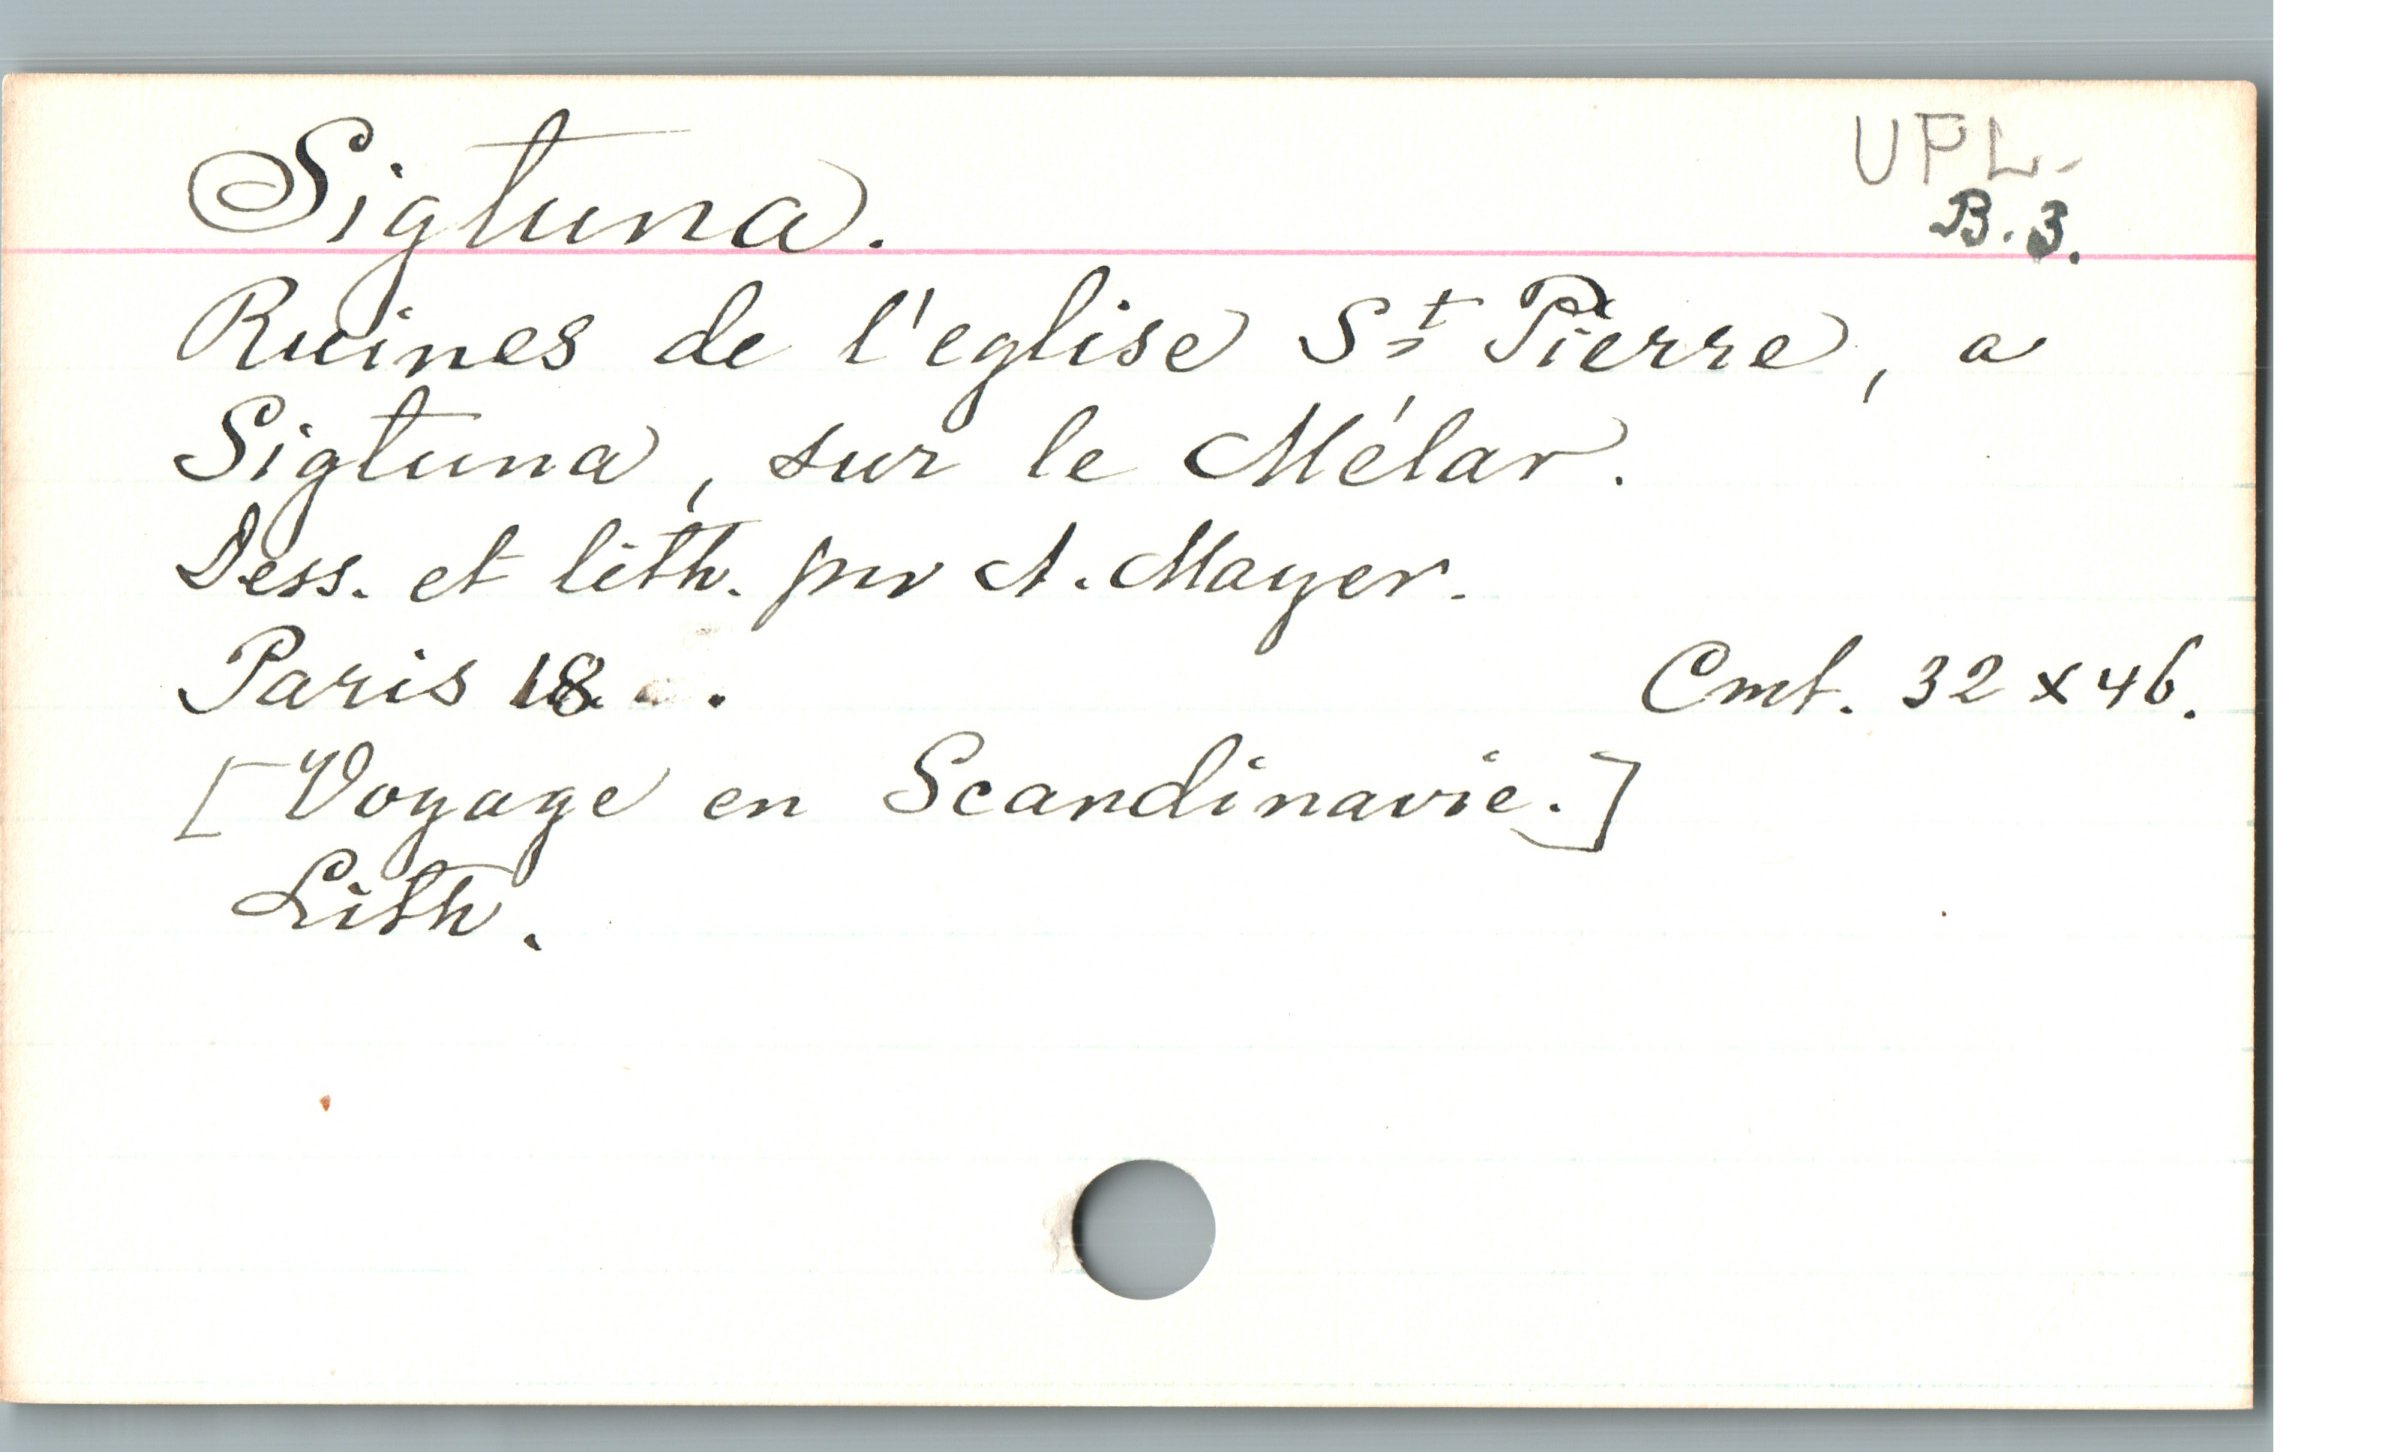 Sigtuna.
UPL.
B. 3.
Ruines de l'eglise St Pierre, a
Sigtuna, sur le Mélar.
Dess. et lith. par A. Mayer.
Paris 18 .
Cmt. 32 x 46.
[Voyage en Scandinavie.]
Lith.